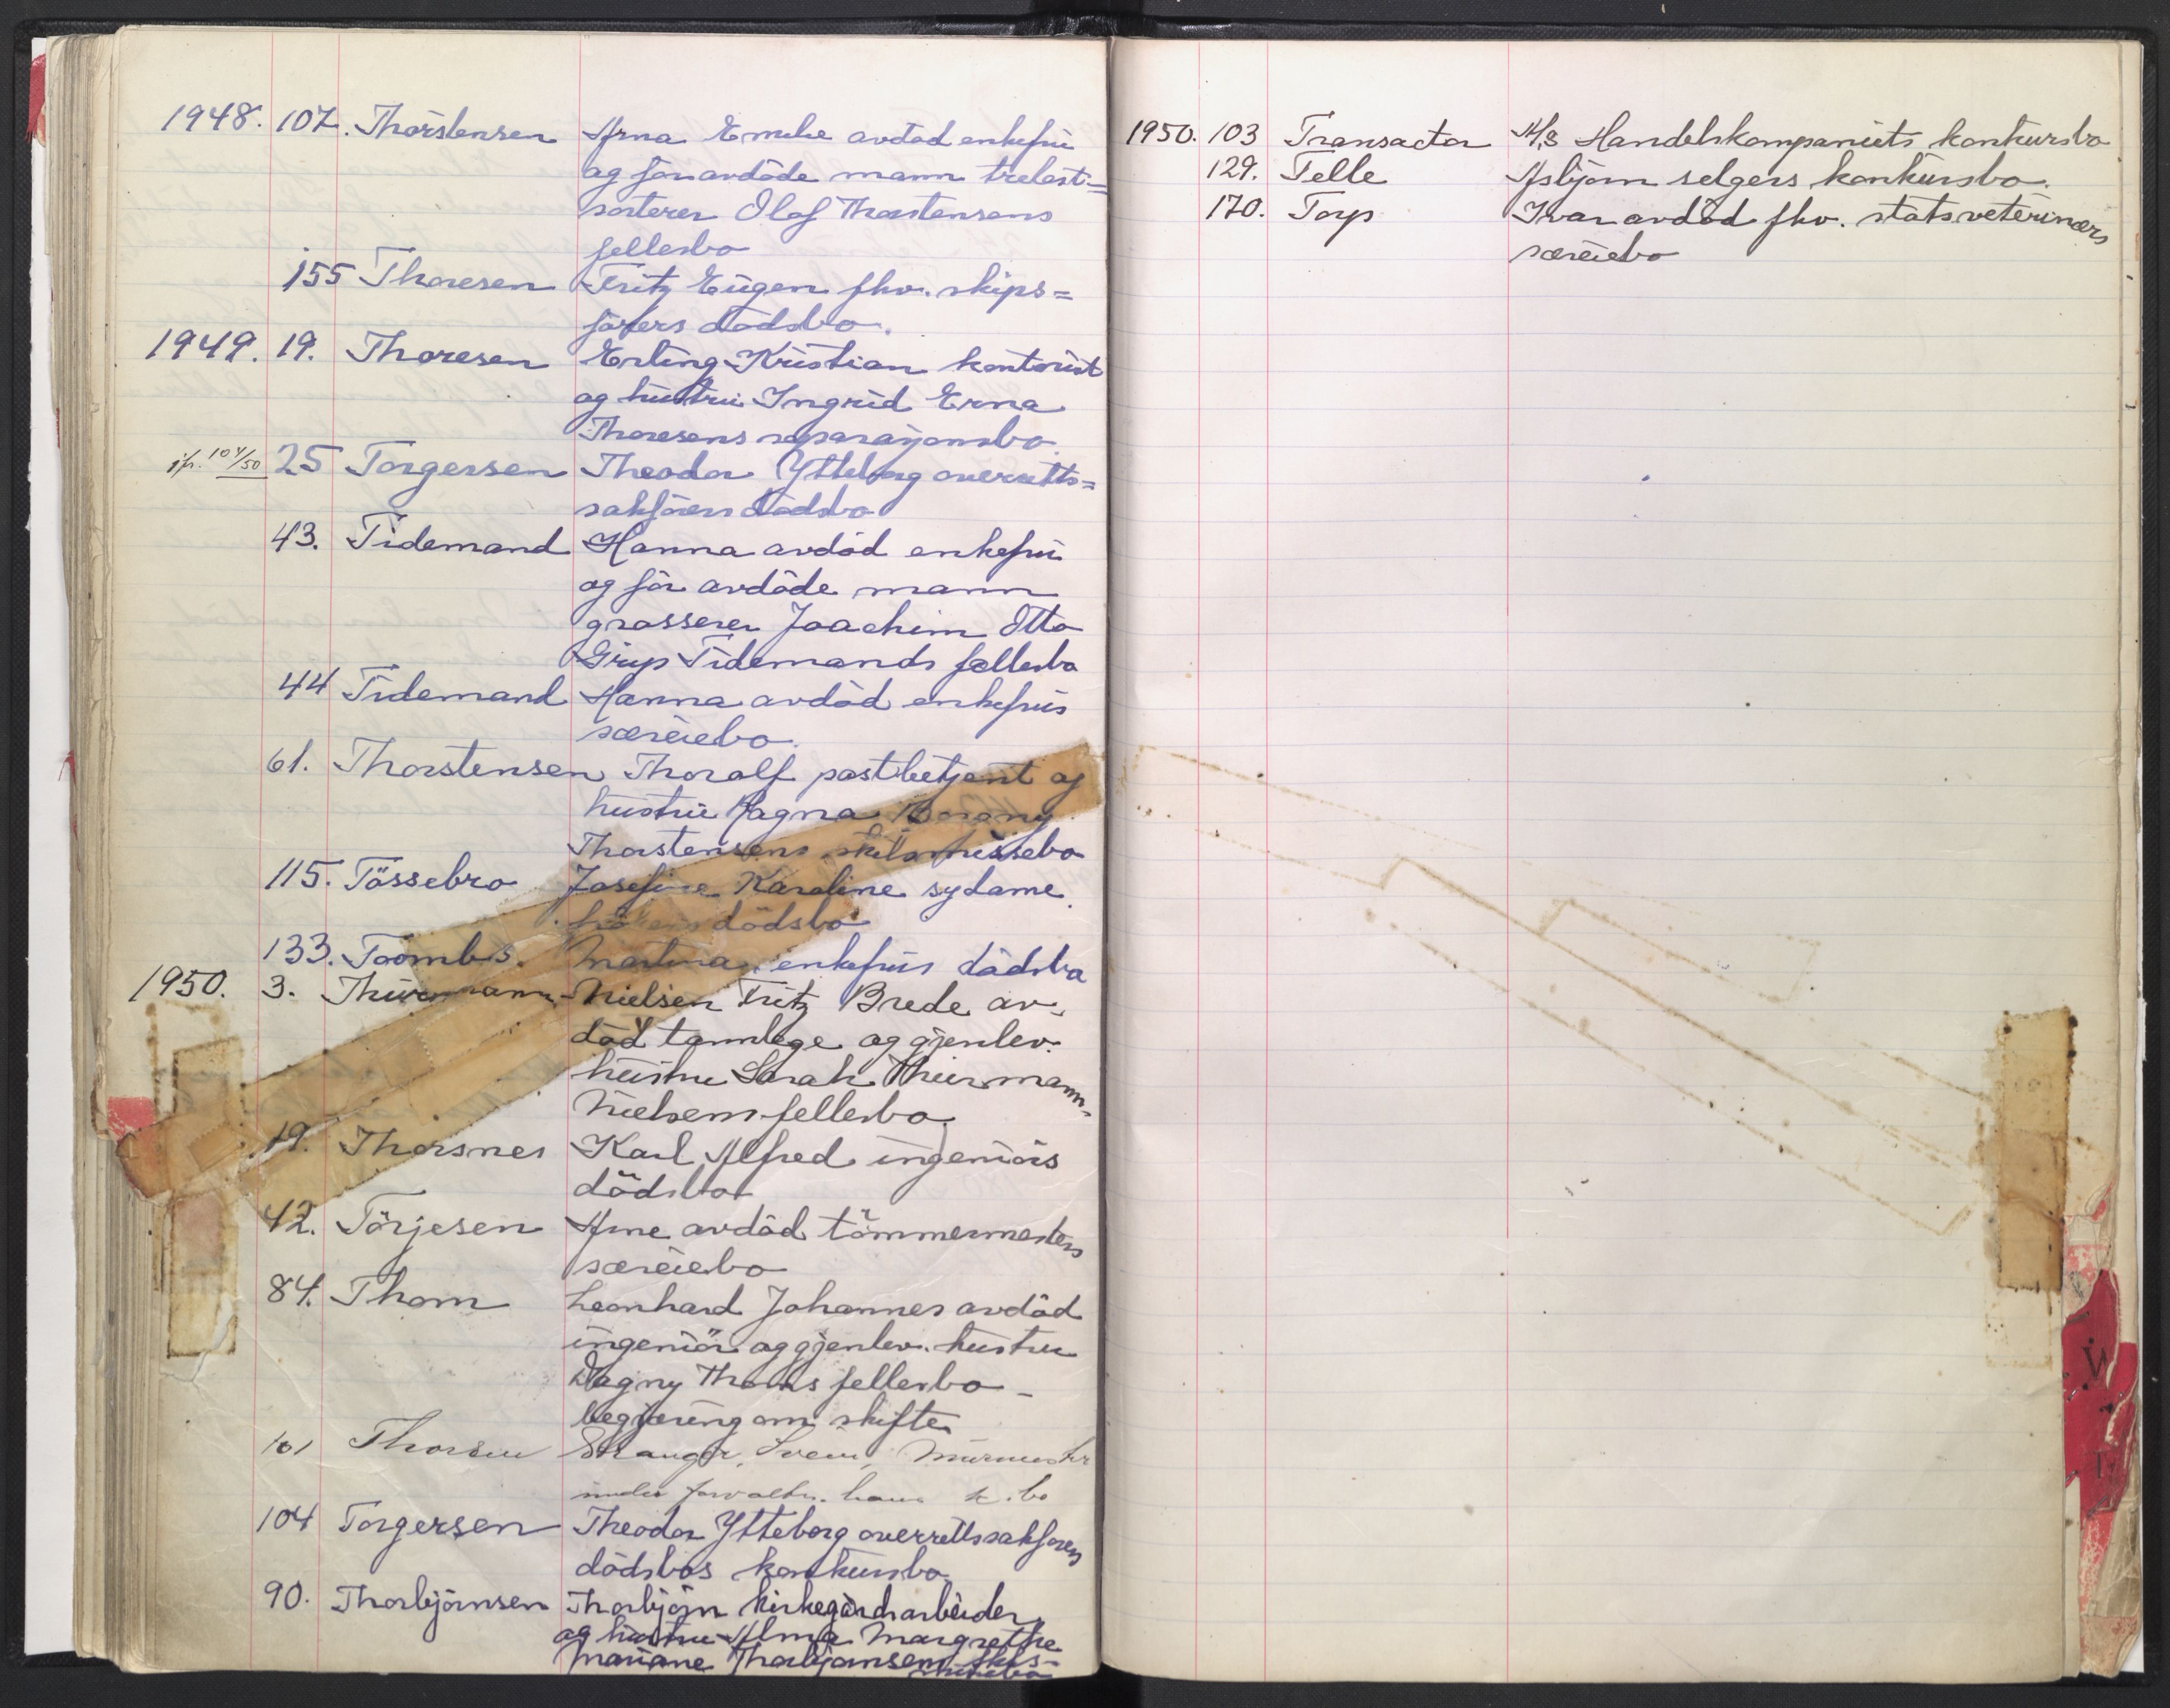 1948. 107. Thorstensen Arna Emilie avdöd enkefru
og för avdöde mann trelast=
sorterer Olof Thorstensens
fellesbo
155 Thoresen Fritz Eugen fhv. skips=
förers dödsbo.
1949. 19. Thoresen Erling Kristian kontorist
og hustru Ingrid Erna
Thoresens separasjonsbo.
jfr. 104/50 25 Torgersen Theodor Ytteborg overretts=
sakförers dödsbo
43. Tidemand Hanna avdöd enkefru
og för avdöde mann
grosserer Joachim Otto
Grip Tidemands fellesbo
44 Tidemand Hanna avdöd enkefrus
særeiebo.
61. Thorstensen Thoralf postbetjent og
hustru Magna Borgny
Thorstensens skilsmissebo
115. Tössebro Josefine Karoline sydame
frökens dödsbo
133. Toombs. Martina, enkefrus dödsbo
1950. 3. Thurmann-Nielsen Fritz Brede av-
död tannlege og gjenlev.
hustru Sarah Thurmann-
Nielsens fellesbo.
19. Thorsnes Karl Alfred ingeniörs
dödsbo
42. Törjesen Arne avdöd tömmermesters
særeiebo
84. Thom Leonhard Johannes avdöd
ingeniör og gjenlev. hustru
Dagny Thoms fellesbo -
begjæring om skifte
101 Thorsen Stranger, Svein, Murmester
under forvaltn. hans k. bo
104 Torgersen Theodor Ytteborg overrettssakförers
dödsbos konkursbo
90. Thorbjörnsen Thorbjörn kirkegårdsarbeider
og hustru Alma Margrethe
Mariane Thorbjörnsens skils-
missebo
1950. 103 Transactor A/S Handelskompaniets konkursbo
129. Telle Asbjörn selgers konkursbo.
170. Torp Ivar avdöd fhv. statsveterinærs
særeiebo